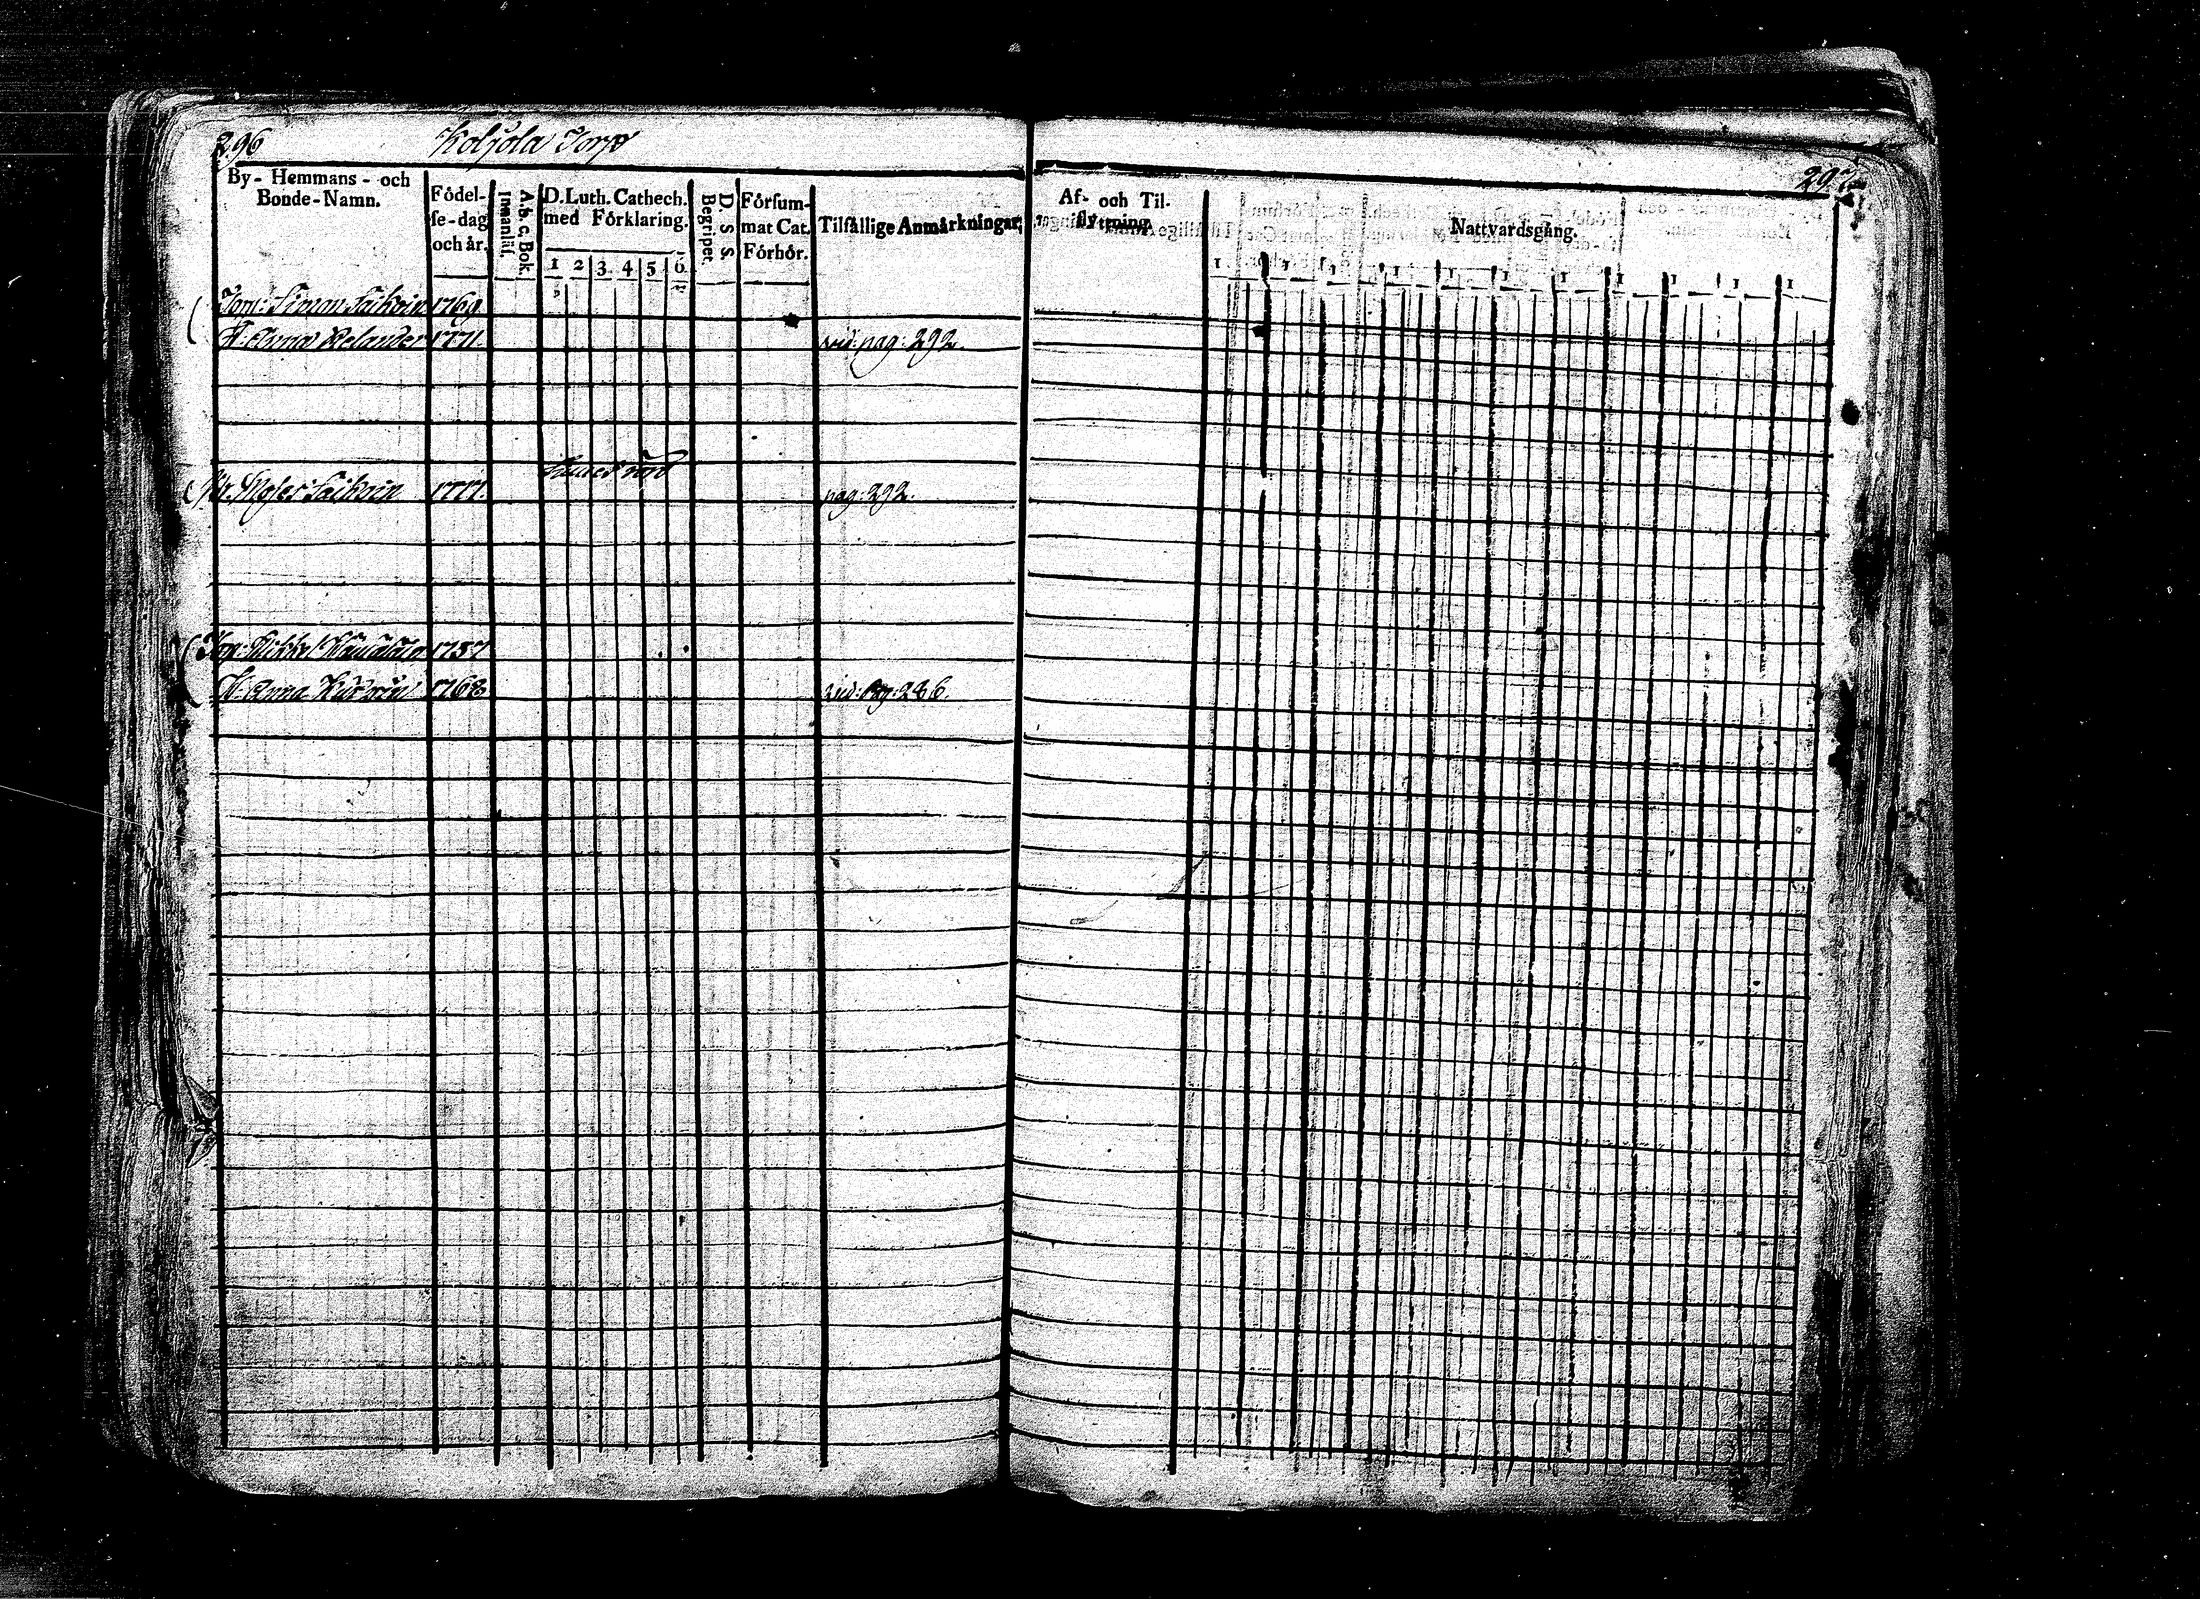 296 Koljola Torp
By- Hemmans- och Bonde-Namn.
Födel-se-dag och år.
A.b.c. Bok. Innanläs.
D. Luth. Cathech. med Förklaring.
1 2 3 4 5 6
D. S. S. Begripet.
Försum-mat Cat. Förhör.
Tilfällige Anmärkningar.
Torp: Simon 1769.
H: Anna Relander 1771. vid: pag: 292.
Moses 1777. pag: 292.
Torp: Mikkel 1757
H: Anna 1768 vid: pag: 286.
297
Af- och Til-flyttning.
Nattvardsgång.
1 1 1 1 1 1 1 1 1 1 1